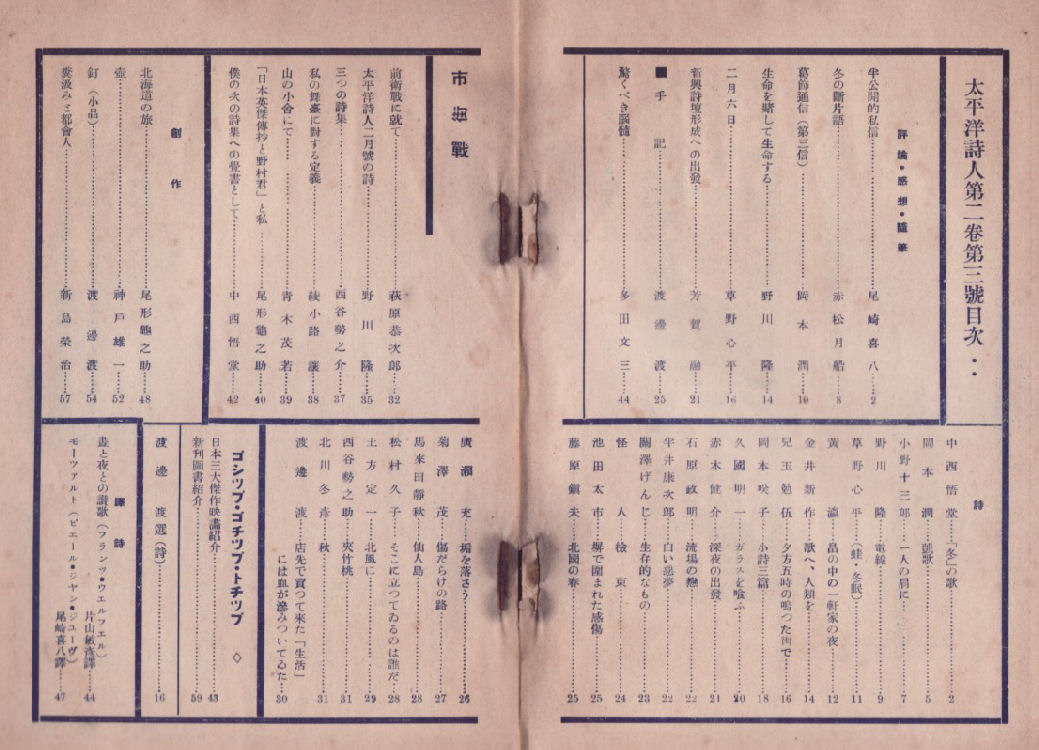 太平洋詩人第二卷第三號目次・・
評論・感想・隨筆
半公開的私信……尾崎喜八…2
冬の斷片語……赤松月船…8
葛飾通信(第三信)……岡本潤…10
生命を賭して生命する……野川隆…14
二月六日……草野心平…16
新興詩壇形成への出發……芳賀融…21
■手記……渡邊渡…25
驚くべき腦髓……多田文三…44
詩
中西悟堂…「冬」の歌……2
岡本潤…凱歌……5
小野十三郎…一人の肩に……7
野川隆…電線……9
草野心平…(蛙・冬眠)……11
黃瀛…畠の中の一軒家の夜……12
金井新作…歌へ、人類を……14
兒玉勉伍…夕方五時の鳴つた街で……16
岡本咲子…小詩三篇……18
久國明一…ガラスを喰ふ……20
赤木健介…深夜の出發……21
石原政明…流場の戀……22
半井康次郎…白い惡夢……22
關澤げんじ…生存的なもの……23
怪人…檢束……24
池田太市…塀で圍まれた感傷……25
藤原鎭夫…北國の春……25
市街戰
前衛戰に就て……萩原恭次郎…32
太平洋詩人二月號の詩……野川隆…35
三つの詩集……西谷勢之介…37
私の舞臺に對する定義……綾小路讓…38
山の小舍にて……青木茂若…39
「日本英傑傳抄と野村君」と私……尾形龜之助…40
僕の次の詩集への覺書として……中西悟堂…42
創作
北海道の旅……尾形龜之助…48
壺……神戸雄一…52
釘(小品)……渡邊渡…54
糞汲みと都會人……新島榮治…57
廣瀬充…垢を落さう……26
菊澤茂…傷だらけの路……27
馬來田靜秋…仙人島……28
松村久子…そこに立つてゐるのは誰だ……28
土方定一…北風に……29
西谷勢之助…夾竹桃……31
北川冬彦…秋……31
渡邊渡…店先で買つて來た「生活」
には血が滲みついてゐた…30
ゴシツプ・ゴチツプ・トチツプ ◇
日本三大傑作映畵紹介……43
新刊圖書紹介……59
渡邊渡選(詩)……16
譯詩
晝と夜との讃歌(フランツ・ウエルフエル)
片山敏彦譯…44
モーツアルト(ピエール・ジヤン・ジユーヴ)
尾崎喜八譯…47